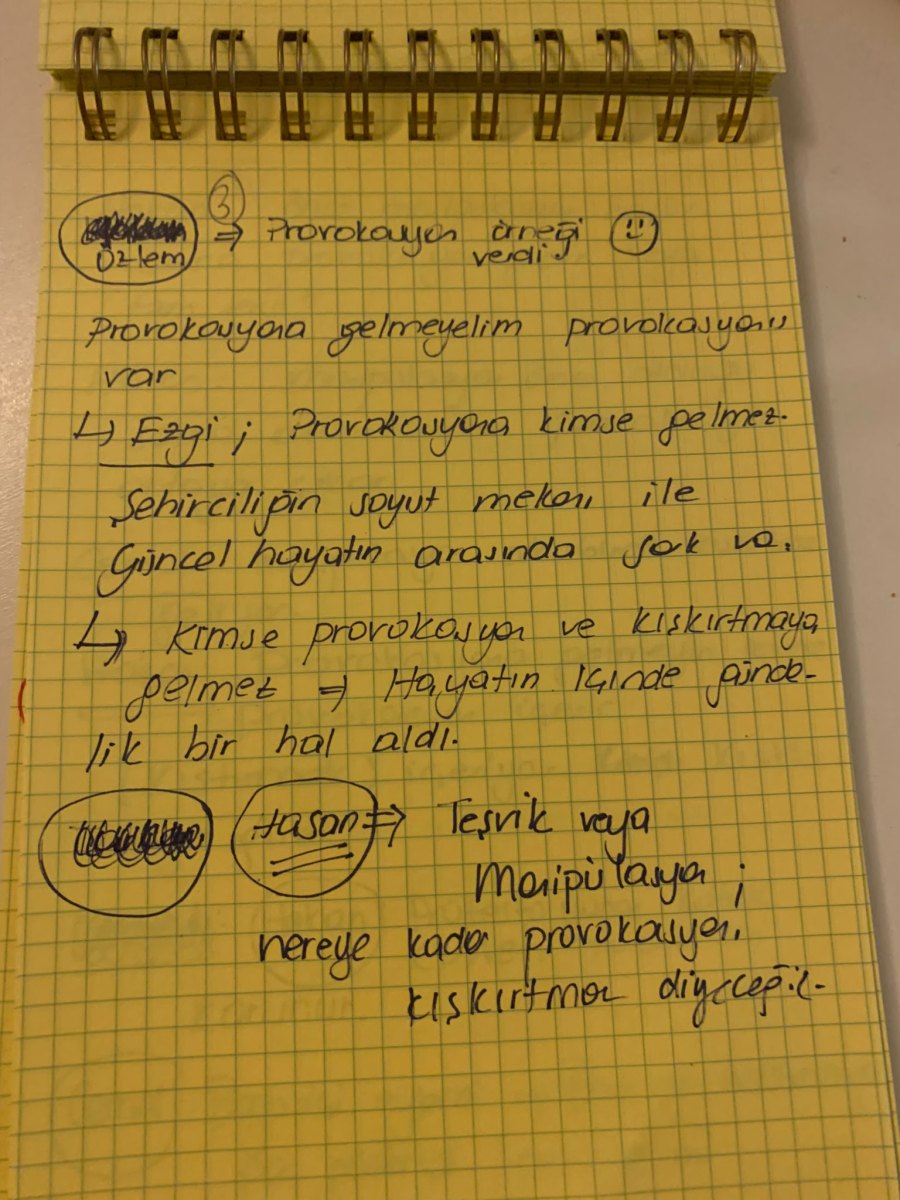 ③
Özlem ⇒ Provokasyon örneği
verdi
Provokasyona gelmeyelim provokasyon
var
↳ Ezgi ; Provokasyona kimse gelmez.
Şehirciliğin soyut mekanı ile
Güncel hayatın arasında
↳ Kimse provokasyon ve kışkırtmaya
gelmez ⇒ Hayatın içinde günde-
lik bir hal aldı.
Hasan ⇒ Teşvik veya
Manipülasyon ;
nereye kadar provokasyon,
kışkırtma diyeceğiz.